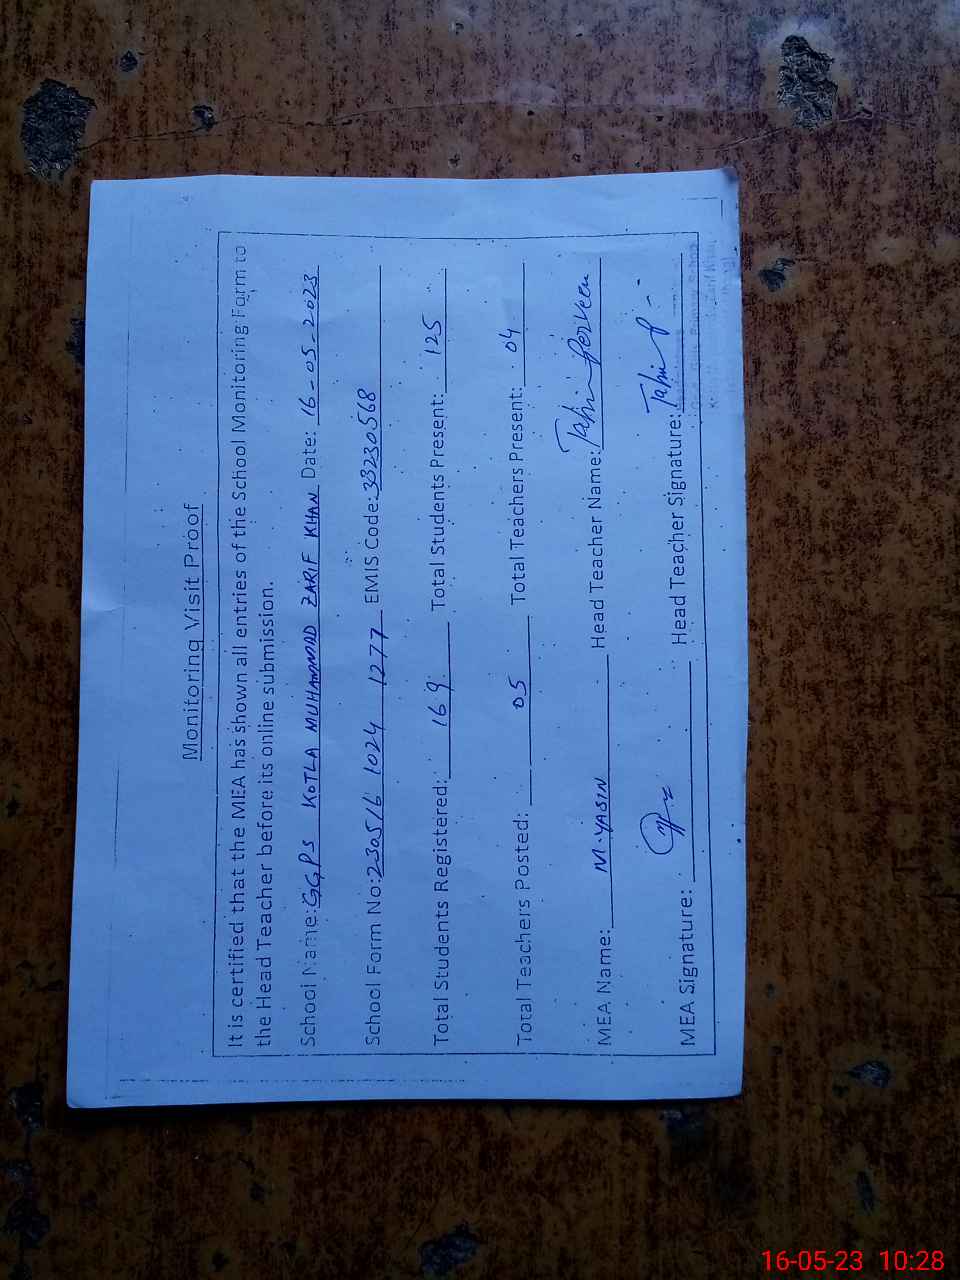 Monitoring Visit Proof
It is certified that the MEA has shown all entries of the School Monitoring Form to
the Head Teacher before its online submission.
School Name: GGPS KOTLA MUHAMMAD ZARIF KHAN Date: 16-05-2023
School Form No: 230516 1024 1277 EMIS Code: 33230568
Total Students Registered: 169 Total Students Present: 125
Total Teachers Posted: 05 Total Teachers Present: 04
MEA Name: M.YASIN Head Teacher Name: Perveen
MEA Signature: Head Teacher Signature:
16-05-23 10:28